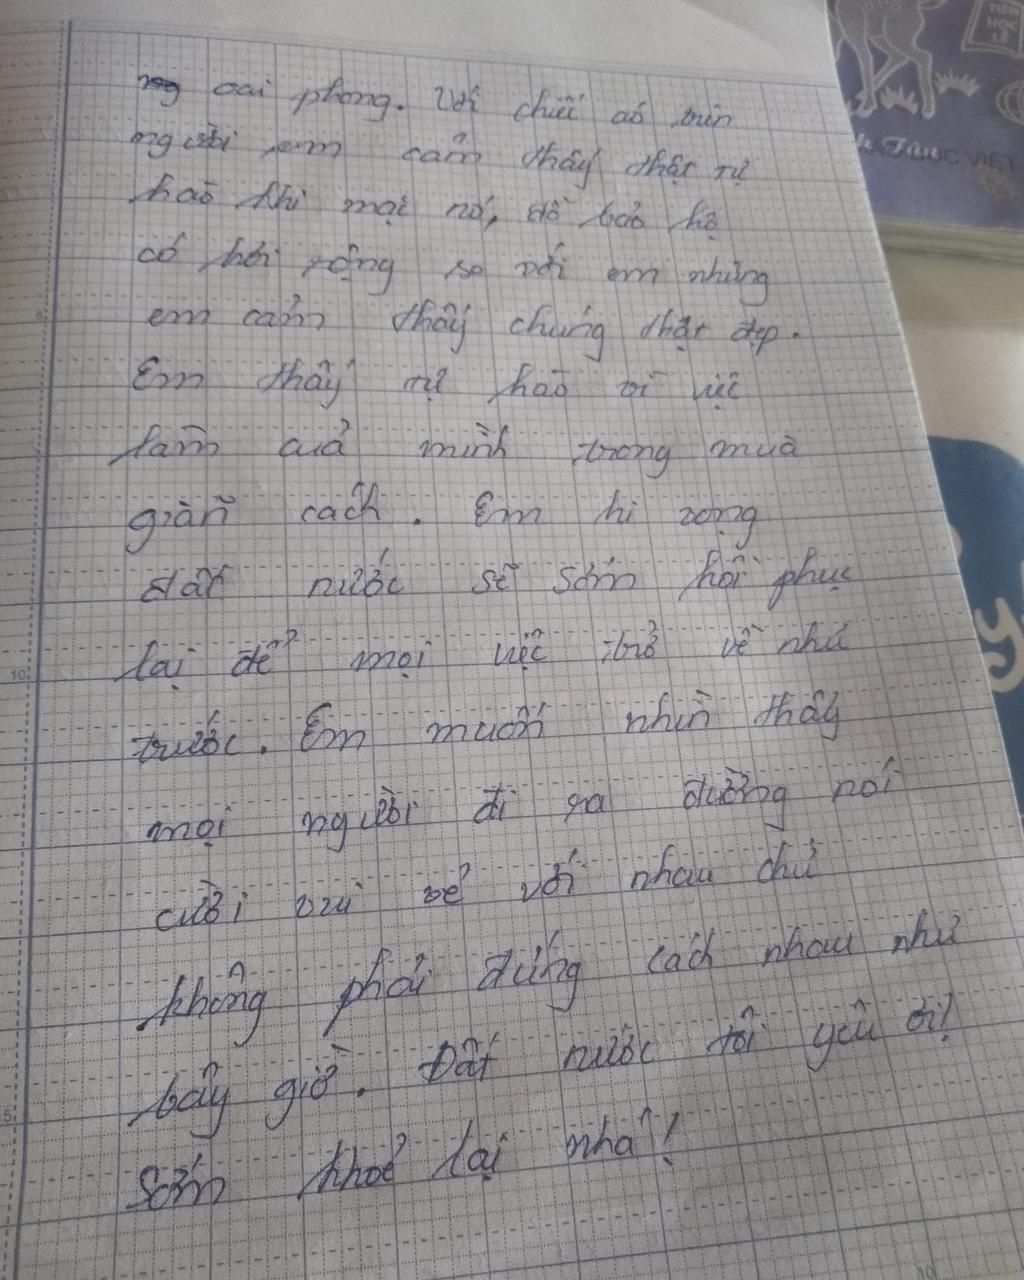 oai phong. Với chiếc áo trên
người em cảm thấy thật tự
hào khi mặc nó, đồ bảo hộ
có hơi rộng so với em nhưng
em cảm thấy chúng thật đẹp.
Em thấy tự hào vì việc
làm của mình trong mùa
giãn cách. Em hi vọng
đất nước sẽ sớm hồi phục
lại để mọi việc trở về như
trước. Em muốn nhìn thấy
mọi người đi ra đường nói
cười vui vẻ với nhau chứ
không phải đứng cách nhau như
bây giờ. Đất nước tôi yêu ơi!
Sớm khoẻ lại nhá!
TIÊN
HỌC
LỄ
ỤC VIỆT